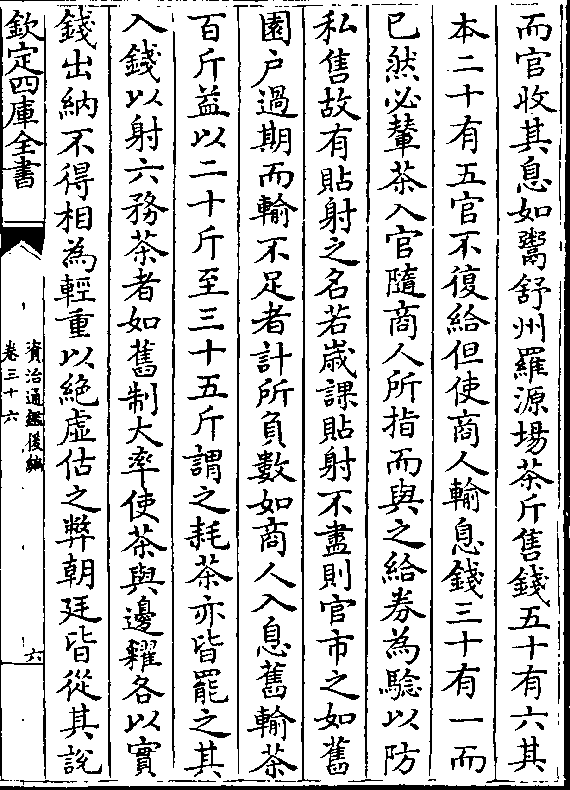 而官收其息如鬻舒州羅源場茶斤售錢五十有六其
本二十有五官不復給但使商人輸息錢三十有一而
已然必輦茶入官隨商人所指而與之給券為驗以防
私售故有貼射之名若嵗課貼射不盡則官市之如舊
園户過期而輸不足者計所負數如商人入息舊輸茶
百斤益以二十斤至三十五斤謂之耗茶亦皆罷之其
入錢以射六務茶者如舊制大率使茶與邊糴各以實
錢出納不得相為輕重以絶虚估之弊朝廷皆從其説
欽定四庫全書
資治通鑑後編
卷三十六
六